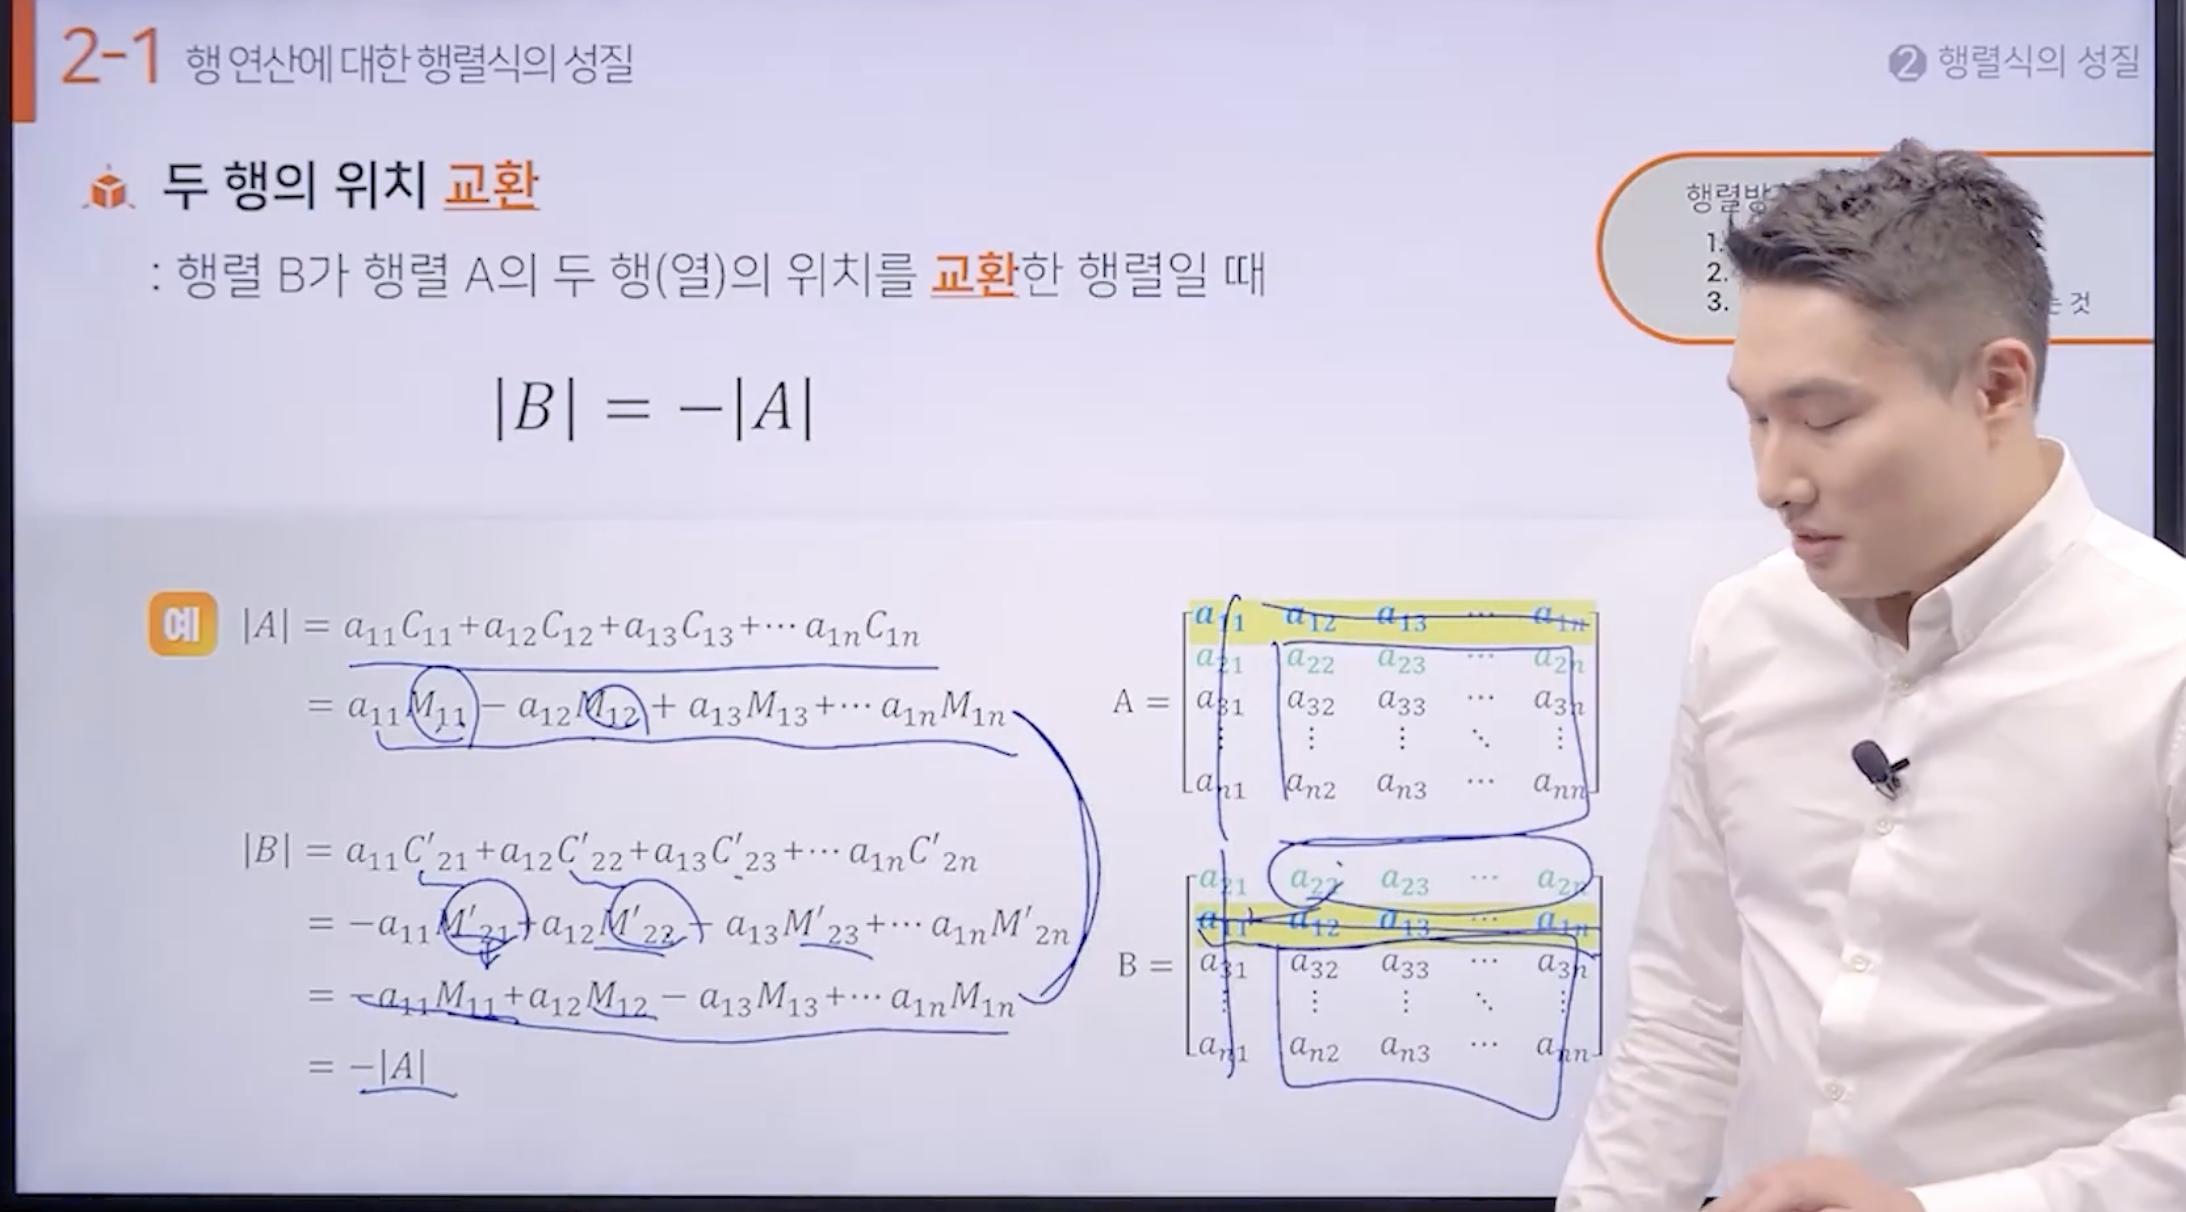 2-1 행 연산에 대한 행렬식의 성질
❷ 행렬식의 성질
두 행의 위치 교환
: 행렬 B가 행렬 A의 두 행(열)의 위치를 교환한 행렬일 때
|B| = −|A|
행렬방
1.
2.
3. 는 것
예 |A| = a₁₁C₁₁+a₁₂C₁₂+a₁₃C₁₃+⋯ a₁ₙC₁ₙ
= a₁₁M₁₁ − a₁₂M₁₂ + a₁₃M₁₃+⋯ a₁ₙM₁ₙ
|B| = a₁₁C′₂₁+a₁₂C′₂₂+a₁₃C′₂₃+⋯ a₁ₙC′₂ₙ
= −a₁₁M′₂₁+a₁₂M′₂₂ − a₁₃M′₂₃+⋯ a₁ₙM′₂ₙ
= −a₁₁M₁₁+a₁₂M₁₂ − a₁₃M₁₃+⋯ a₁ₙM₁ₙ
= −|A|
a₁₁ a₁₂ a₁₃ ⋯ a₁ₙ
a₂₁ a₂₂ a₂₃ ⋯ a₂ₙ
A = a₃₁ a₃₂ a₃₃ ⋯ a₃ₙ
⋮ ⋮ ⋮ ⋱ ⋮
aₙ₁ aₙ₂ aₙ₃ ⋯ aₙₙ
a₂₁ a₂₂ a₂₃ ⋯ a₂ₙ
a₁₁ a₁₂ a₁₃ ⋯ a₁ₙ
B = a₃₁ a₃₂ a₃₃ ⋯ a₃ₙ
⋮ ⋮ ⋮ ⋱ ⋮
aₙ₁ aₙ₂ aₙ₃ ⋯ aₙₙ